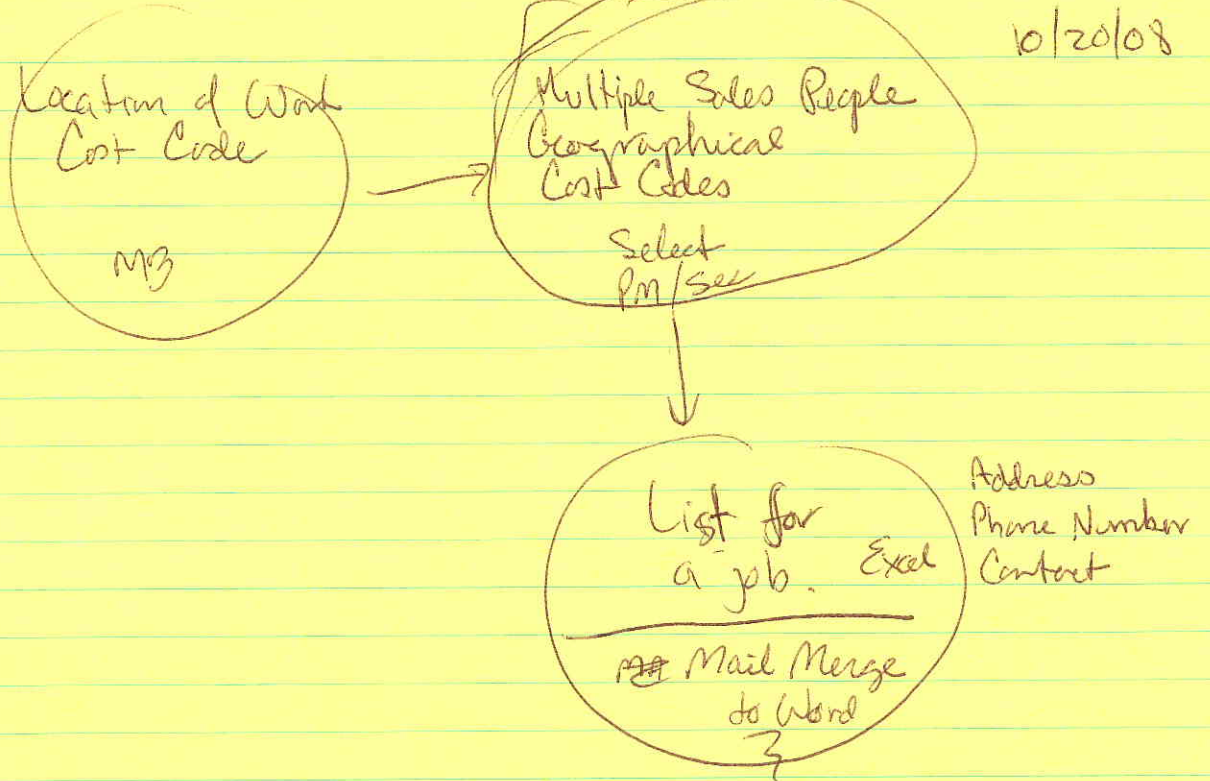 10/20/08
Location of Work
Cost Code
Multiple Sales People
Geographical
Cost Codes
Select
PM/Sec
List for
a job. Excel
Mail Merge
to Word
Address
Phone Number
Contact